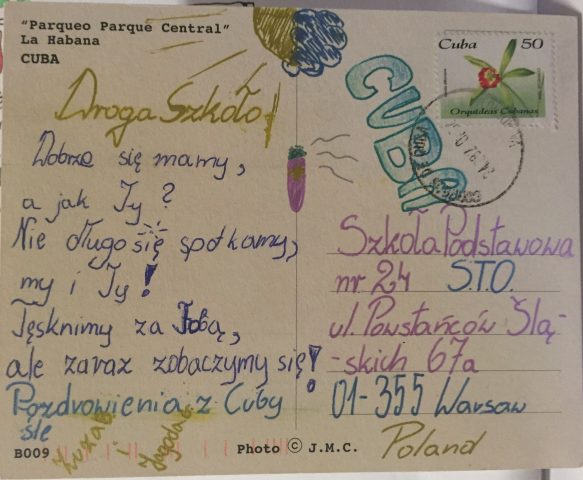 "Parqueo Parque Central"
La Habana
CUBA
Droga Szkoło!
Dobrze się mamy,
a jak Ty?
Nie długo się spotkamy,
my i Ty!
Tęsknimy za Tobą,
ale zaraz zobaczymy się!
Pozdrowienia z Cuby
śle
Zuza
i Jagoda
B009
Photo © J.M.C.
CUBA
Cuba 50
Orquídeas Cubanas
Szkoła Podstawowa
nr 24 S.T.O.
ul. Powstańców Ślą-
-skich 67a
01-355 Warsaw
Poland